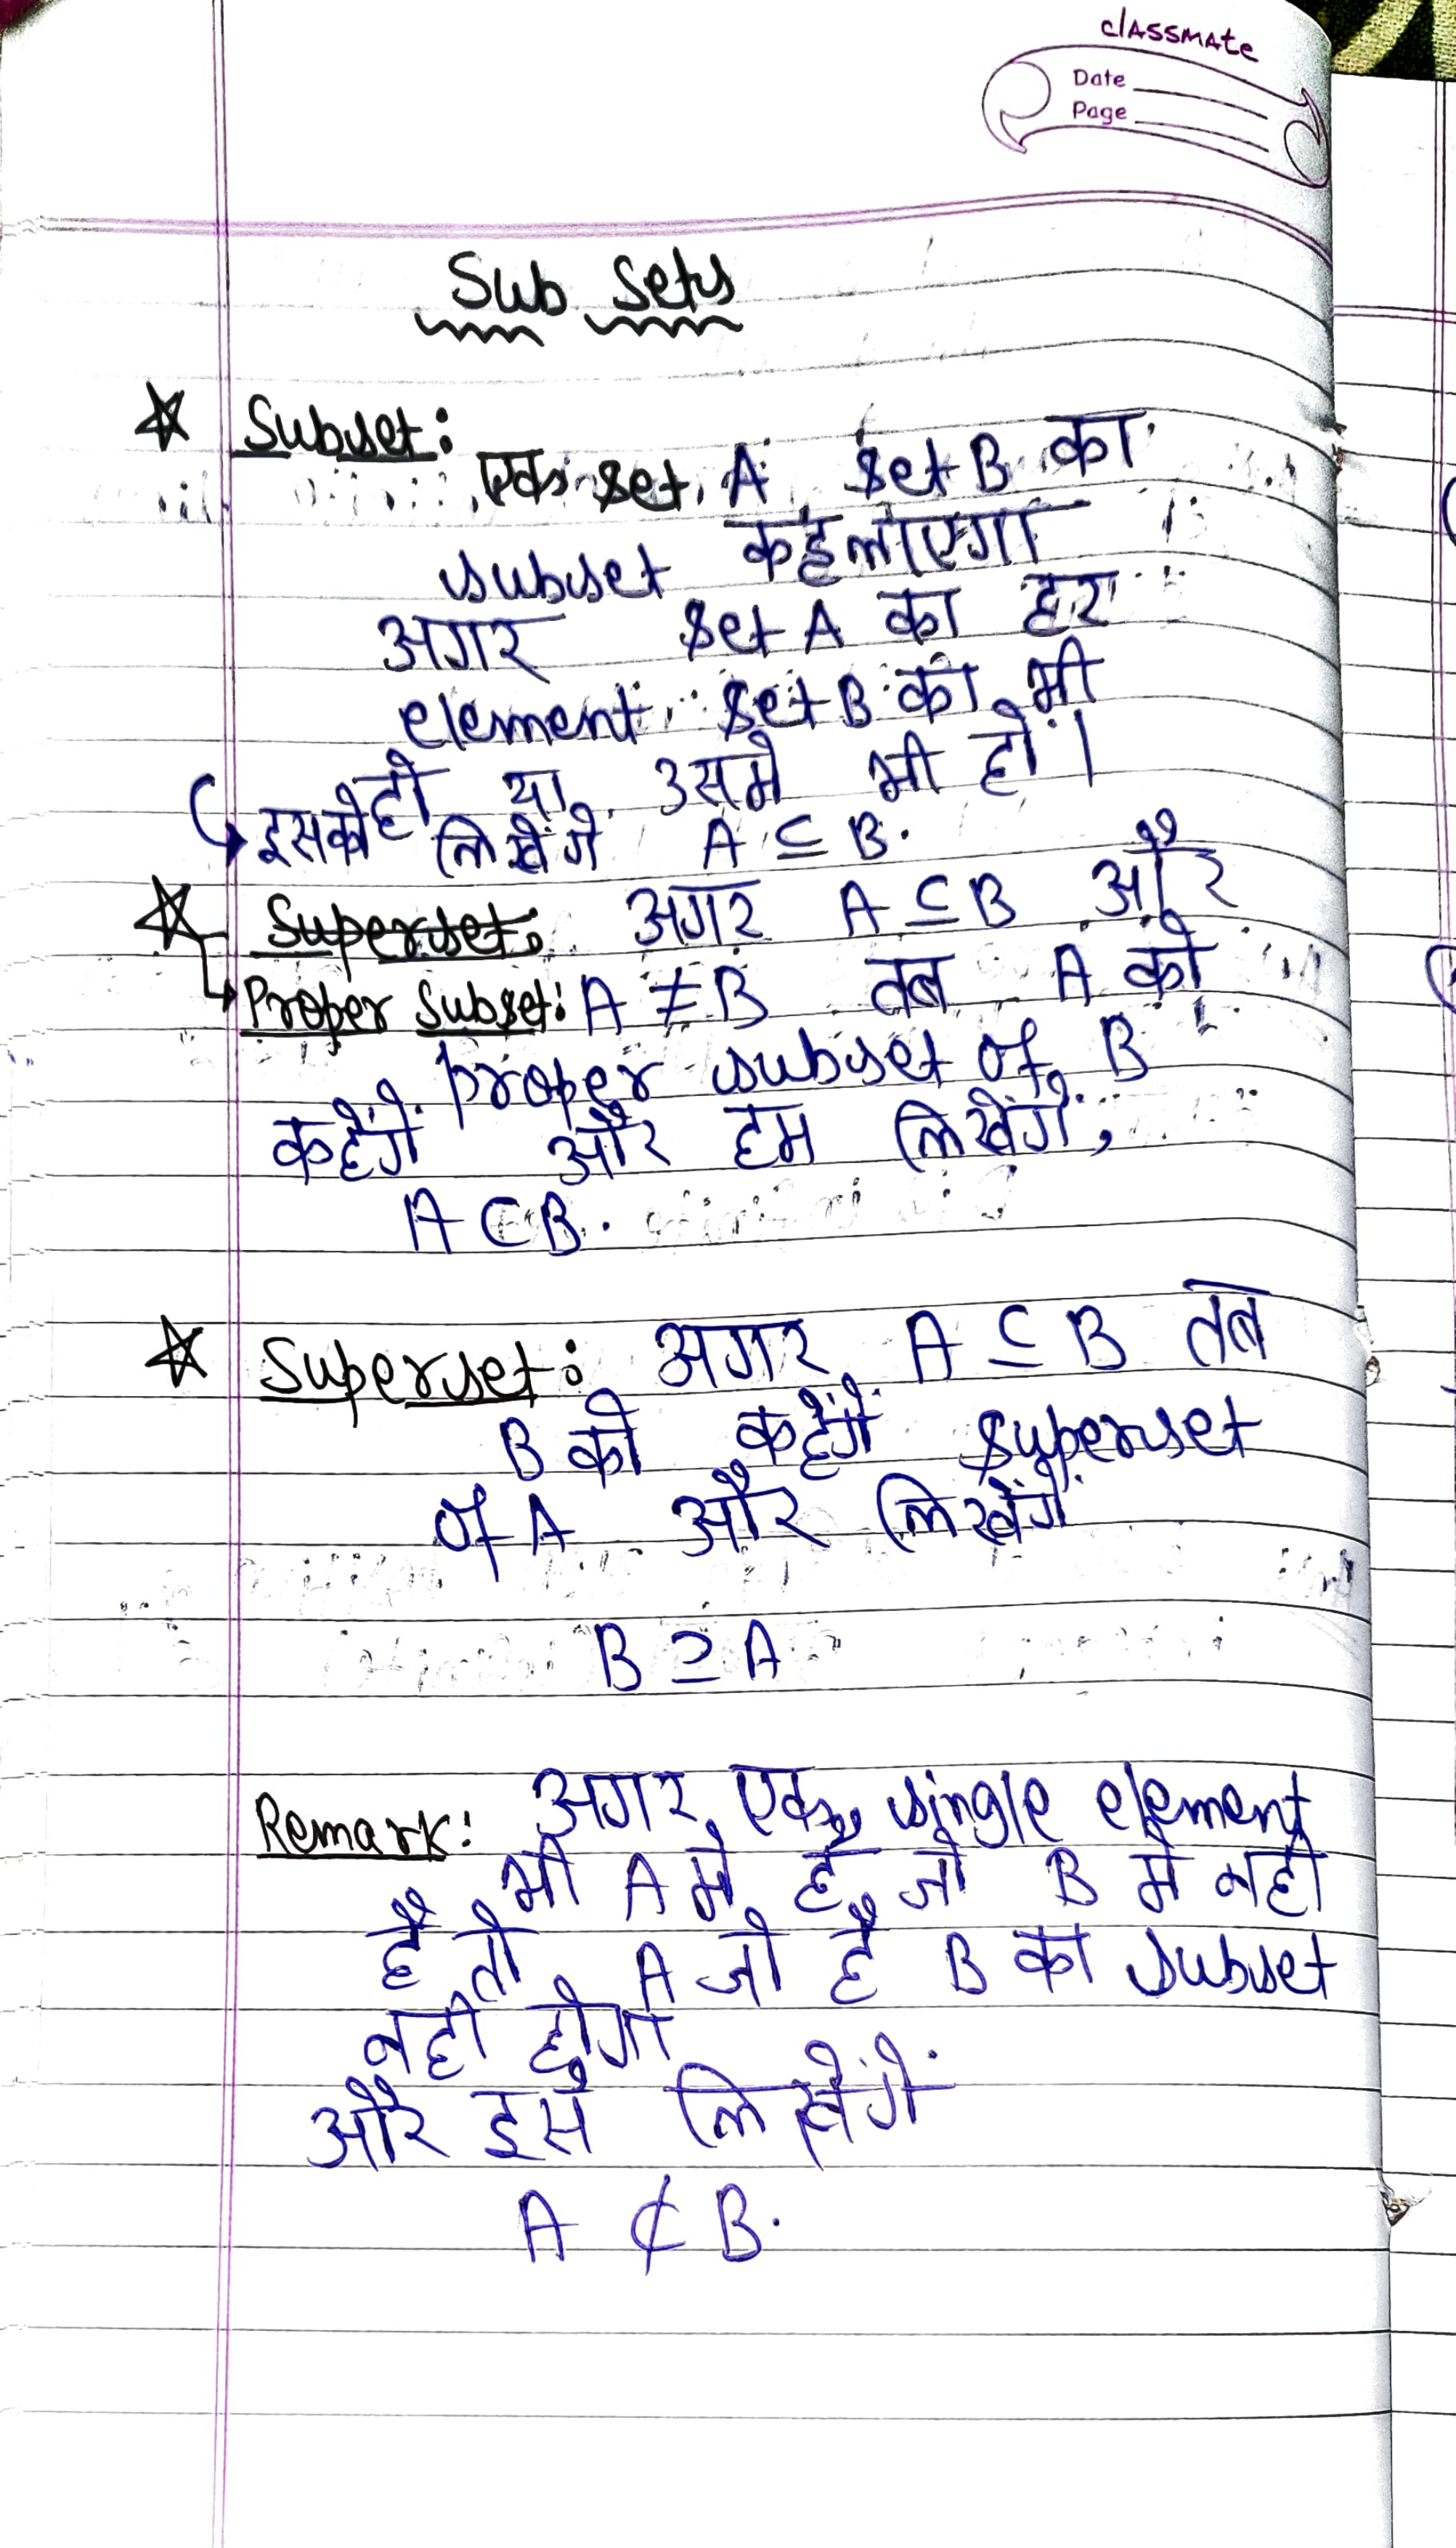 classmate
Date
Page
Sub Sets
Subset:
एक set A set B का
subset कहलाएगा
अगर set A का हर
element set B का भी
हो या उसमे भी हो।
इसको लिखेंगे A ⊆ B.
Superset: अगर A ⊆ B और
Proper Subset: A ≠ B तब A को
proper subset of B
कहेंगे और हम लिखेंगे,
A ⊂ B.
Superset: अगर A ⊆ B तब
B को कहेंगे superset
of A और लिखेंगे
B ⊇ A
Remark: अगर एक single element
भी A मे है जो B मे नही
है तो A जो है B का subset
नही होगा
और इसे लिखेंगे
A ⊄ B.